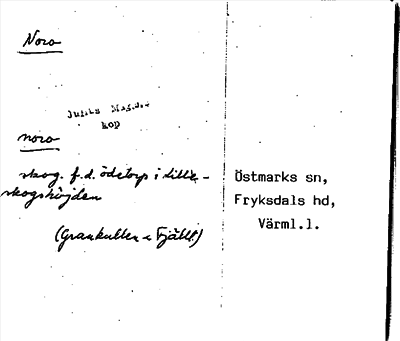 Noro
kop
noro
skog. f.d. ödetorp i Lille-
skogshöjden
(Grankullen i Fjäll)
Östmarks sn,
Fryksdals hd,
Värml.l.